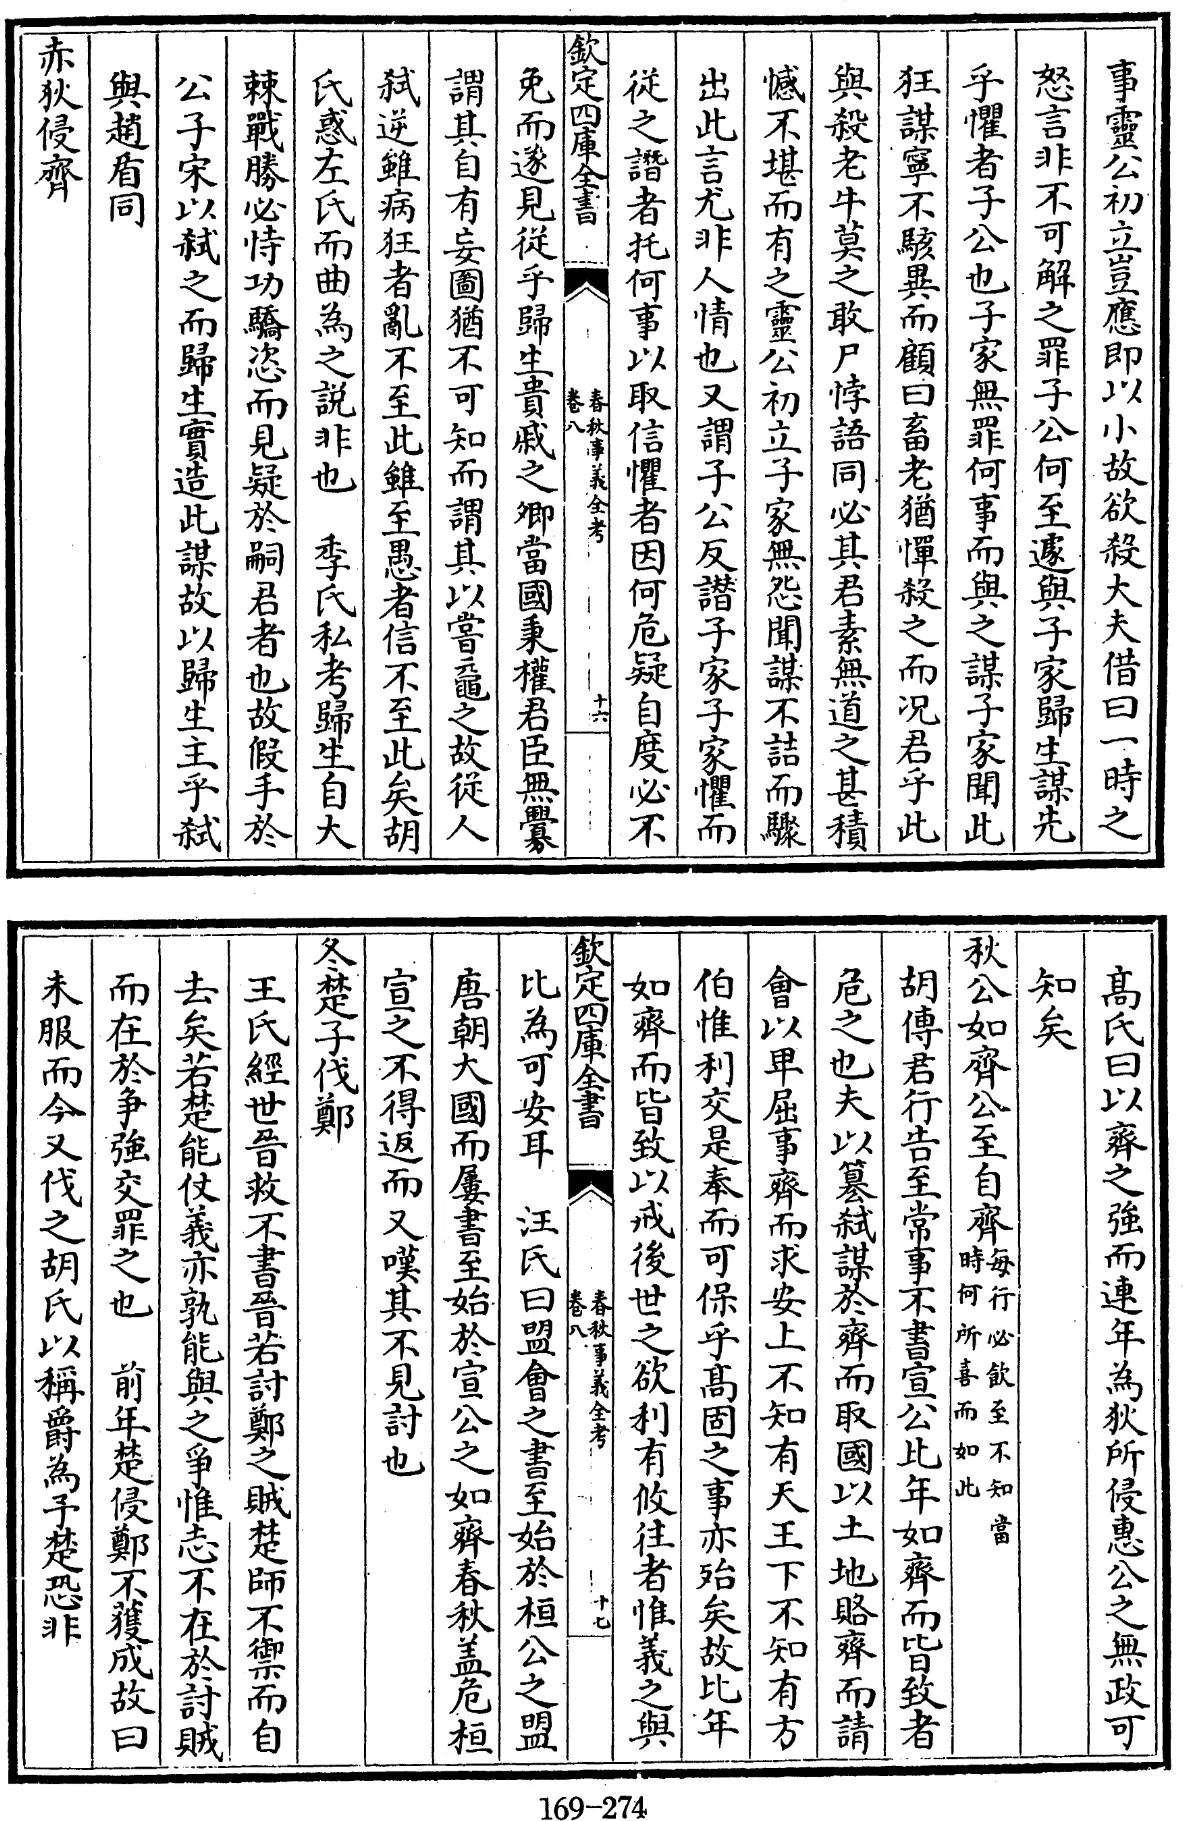 事靈公初立豈應即以小故欲殺大夫借曰一時之
怒言非不可解之罪子公何至遽與子家歸生謀先
乎懼者子公也子家無罪何事而與之謀子家聞此
狂謀寧不駭異而顧曰畜老猶憚殺之而況君乎此
與殺老牛莫之敢尸悖語同必其君素無道之甚積
憾不堪而有之靈公初立子家無怨聞謀不詰而驟
出此言尤非人情也又謂子公反譖子家子家懼而
從之譖者托何事以取信懼者因何危疑自度必不
欽定四庫全書
春秋事義全考
卷八
十六
免而遂見從乎歸生貴戚之卿當國秉權君臣無釁
謂其自有妄圖猶不可知而謂其以嘗黿之故從人
弑逆雖病狂者亂不至此雖至愚者信不至此矣胡
氏惑左氏而曲為之説非也 季氏私考歸生自大
棘戰勝必恃功驕恣而見疑於嗣君者也故假手於
公子宋以弑之而歸生實造此謀故以歸生主乎弑
與趙盾同
赤狄侵齊
髙氏曰以齊之強而連年為狄所侵惠公之無政可
知矣
秋公如齊公至自齊每行必飲至不知當
時何所喜而如此
胡傳君行告至常事不書宣公比年如齊而皆致者
危之也夫以篡弑謀於齊而取國以土地賂齊而請
會以卑屈事齊而求安上不知有天王下不知有方
伯惟利交是奉而可保乎髙固之事亦殆矣故比年
如齊而皆致以戒後世之欲利有攸往者惟義之與
欽定四庫全書
春秋事義全考
卷八
十七
比為可安耳 汪氏曰盟會之書至始於桓公之盟
唐朝大國而屢書至始於宣公之如齊春秋盖危桓
宣之不得返而又嘆其不見討也
冬楚子伐鄭
王氏經世晉救不書晉若討鄭之賊楚師不禦而自
去矣若楚能仗義亦孰能與之爭惟志不在於討賊
而在於争強交罪之也 前年楚侵鄭不獲成故曰
未服而今又伐之胡氏以稱爵為予楚恐非
169-274